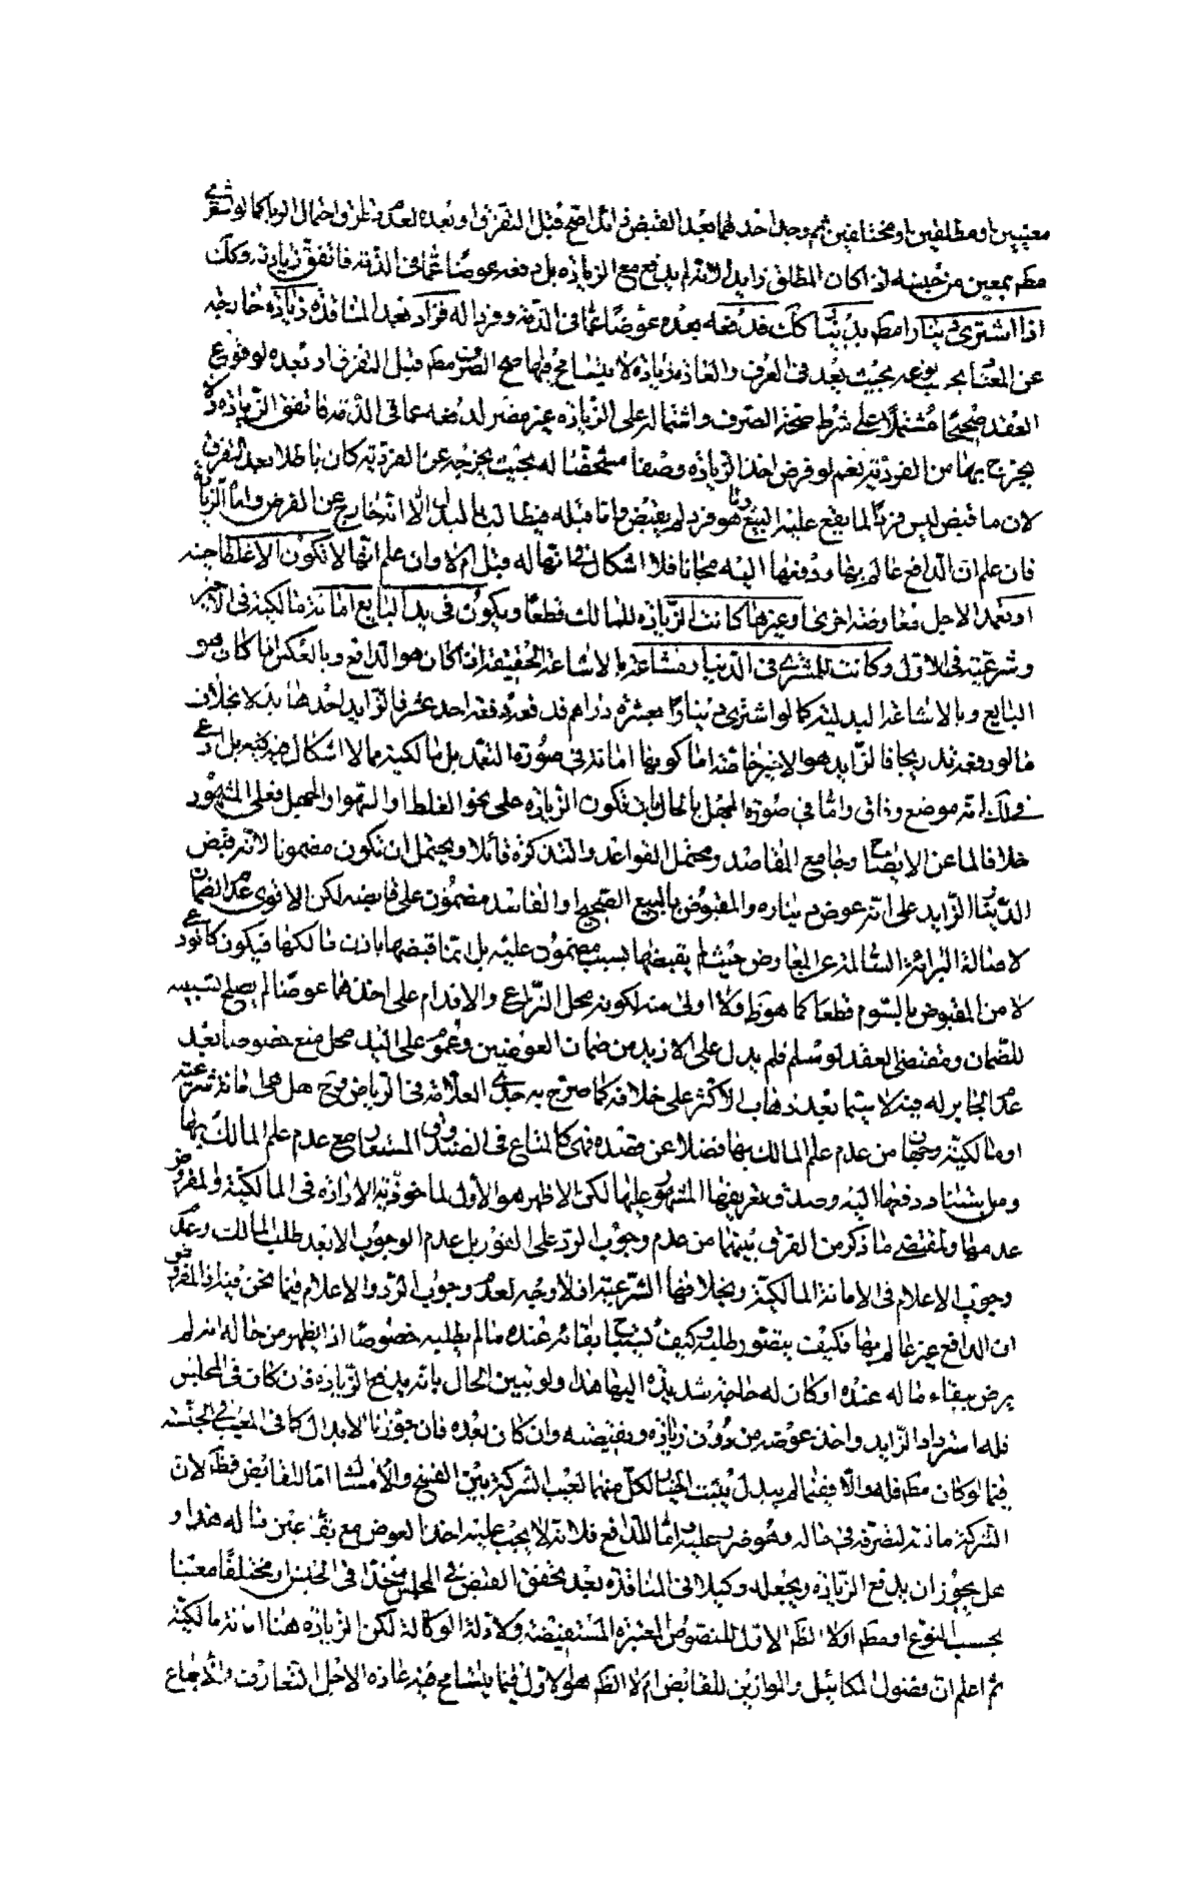 معينين او مطلقين او مختلفين ثم وجد احدهما بعد القبض زائدا صح قبل التفرق او بعده لعدم تلزق احتمال الربا كما لو اشترى
مطم بمعين من جنسه اذا كان المطلق زايدا لانه لم يدفع مع الزيادة بل دفعه عوضا عما في الذمة فاتفق زيادته وكك
اذا اشترى دينارا مطم بدينار كك فدفعه بعده عوضا عما في الذمة ووزنا له فزاد بعد المناقدة زيادة خارجة
عن المعتاد بحيث يعد في العرف والعادة زيادة لا يتسامح فيها صح الصرف مطم قبل التفرق او بعده لوقوع
العقد صحيحا مشتملا على شرط صحة الصرف واشتماله على الزيادة غير مضر لدفعه عما في الذمة فاتفق الزيادة ولا
يخرج بها من الفردية نعم لو فرض اخذ الزيادة وصفا مشخصا له بحيث يخرجه عن الفردية كان باطلا بعد التفرق
لان ما قبض ليس فردا لما يقع عليه البيع وما هو فرد لم يقبض واما قبله فيطالب بالبدل الا انه خارج عن الفرض واما الزيادة
فان علم ان الدافع عالم بها ودفعها اليه مجانا فلا اشكال في انها له قبل ام لا وان علم انها لا تكون الا غلطا منه
او تعمدا لاجل معاوضة اخرى او غيرها كانت الزيادة للمالك قطعا ويكون في يد البايع امانة مالكية في الاخير
وشرعية في الاول وكانت للمشتري في الدينار مشاعة بالاشاعة الحقيقة اذا كان هو الدافع وبالعكس اذا كان هو
البايع وبالاشاعة البدلية كما لو اشترى دينارا بعشرة دراهم فدفعه دفعة احد عشر فالزايد احدها بدلا بخلاف
ما لو دفعه تدريجا فالزايد هو الاخير خاصة اما كونها امانة في صورة التعمد بل مالكية مما لا اشكال فيه بل ادعى
في ذلك انه موضع وفاق واما في صورة الجهل بالحال بان تكون الزيادة على نحو الغلط او السهو او الجهل فعلى المشهور
خلافا لما عن الايضاح وجامع المقاصد ومحتمل القواعد والتذكرة فائلا ويحتمل ان تكون مضمونا لانه قبض
الدينار الزايد على انه عوض ديناره والمقبوض بالبيع الصحيح او الفاسد مضمون على قابضه لكن الاقوى عدم الضمان
لاصالة البرائة السالمة عن المعارض حيث لم يقبضها بسبب مضمون عليه بل انما قبضها باذن مالكها فيكون كالودعي
لا من المقبوض بالسوم قطعا كما هو ظ ولا اولى منه لكونه محل النزاع والاقدام على اخذهما عوضا لم يصلح لسببيته
للضمان ومقتضى العقد لو سلم فلم يدل على لازيد من ضمان العوضين وعموم على اليد محل منع خصوصا بعد
عدم الجابر له فيه لا سيما بعد ذهاب الاكثر على خلافه كما صرح به جدي العلامة في الرياض وح هل هي امانة شرعية
او مالكية وجهان من عدم علم المالك بها فضلا عن قصده فهي كالمتاع في الصندوق المستعار مع عدم علم المالك بها
ومن استناد دفعها اليه وصدق تعريفها المشهور عليها لكن الاظهر هو الاول لماخوذية الارادة في المالكية والمفروض
عدمها والمقتضى ما ذكر من الفرق بينهما من عدم وجوب الرد على الفور بل عدم الوجوب الا بعد طلب المالك وعدم
وجوب الاعلام في الامانة المالكية وبخلافها الشرعية اذ لا وجه لعدم وجوب الرد والاعلام فيما نحن فيه اذ المفروض
ان الدافع غير عالم بها فكيف يتصور طلبه وكيف يستباح بقائه عنده ما لم يطلبه خصوصا اذا يظهر من حاله انه لم
يرض ببقاء ماله عنده او كان له حاجة شديدة اليها هذا ولو تبين الحال بانه يدفع الزيادة فان كان في المجلس
فله استرداد الزايد واخذ عوضه من دون زيادة ويقبضه وان كان بعده فان جوزنا الابدال كما في المعيب الجنسه
فيما لو كان مطم فله والا فيما لم يبدل يثبت الخيار لكل منهما لعيب الشركة بين الفسخ والامساك اما للقابض فظ لان
الشركة مانعة لتصرفه في ماله وهو ضرر عليه واما للدافع فلانه لا يجب عليه اخذ العوض مع بقاء عين ماله هذا و
هل يجوز ان يدفع الزيادة ويجعله وكيلا في المناقدة بعد تحقق القبض في المجلس متحدا في الجنس او مختلفا معينا
بحسب النوع او مطم او لا الظم الاول للنصوص المعتبرة المستفيضة ولادلة الوكالة لكن الزيادة هنا امانة مالكية
ثم اعلم ان فضول المكائيل والموازين للقابض ام لا الظم هو الاول فيما يتسامح فيه عادة لاجل التعارف والاجماع